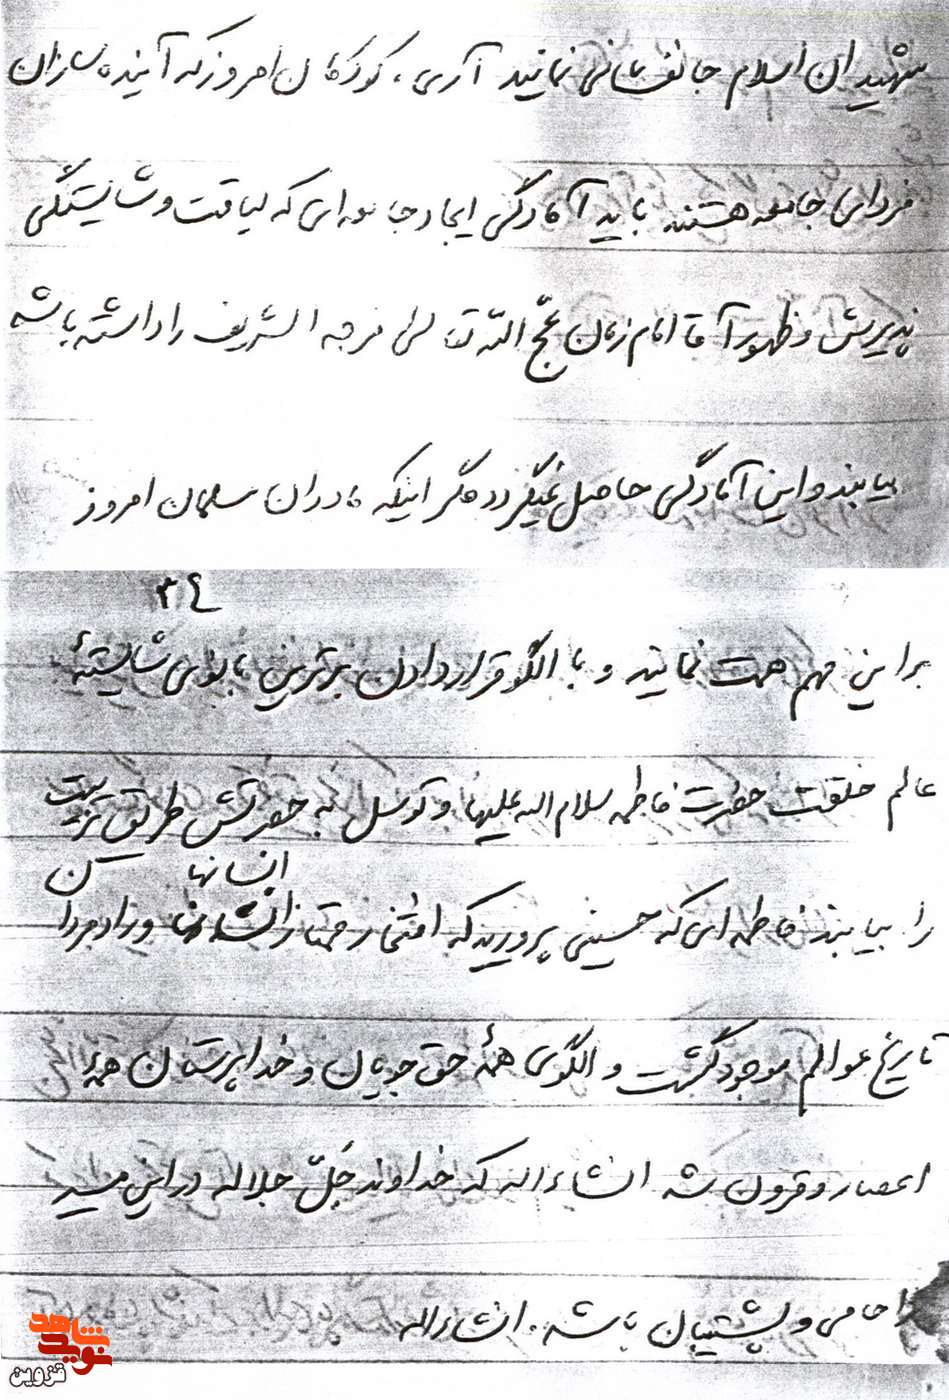 شهیدان اسلام جانفشانی نمایند آری ، کودکان امروز که آینده سازان
فردای جامعه هستند باید آمادگی ایجاد جامعه ای که لیاقت و شایستگی
پذیرش و ظهور آقا امام زمان عجّ اللّه تعالی فرجه الشریف را داشته باشد
بیابند و این آمادگی حاصل نمیگردد مگر اینکه مادران مسلمان امروز
۳۴
براین مهم همت نمایند و با الگو قرار دادن برترین بانوی شایستهٔ
عالم خلقت حضرت فاطمه سلام اله علیها و توسل به حضرتش طریق تربیت
انسانها
را بیابند فاطمه ای که حسینی پرورید که افتخار ممتاز و رادمردان
تاریخ عوالم موجود گشت و الگوی همهٔ حق جویان و خداپرستان همهٔ
اعصار و قرون شد انشاءاله که خداوند جَلّ جلاله در این مسیر
ما را حامی و پشتیبان باشد . انشاءاله
نوید شاهد
قزوین